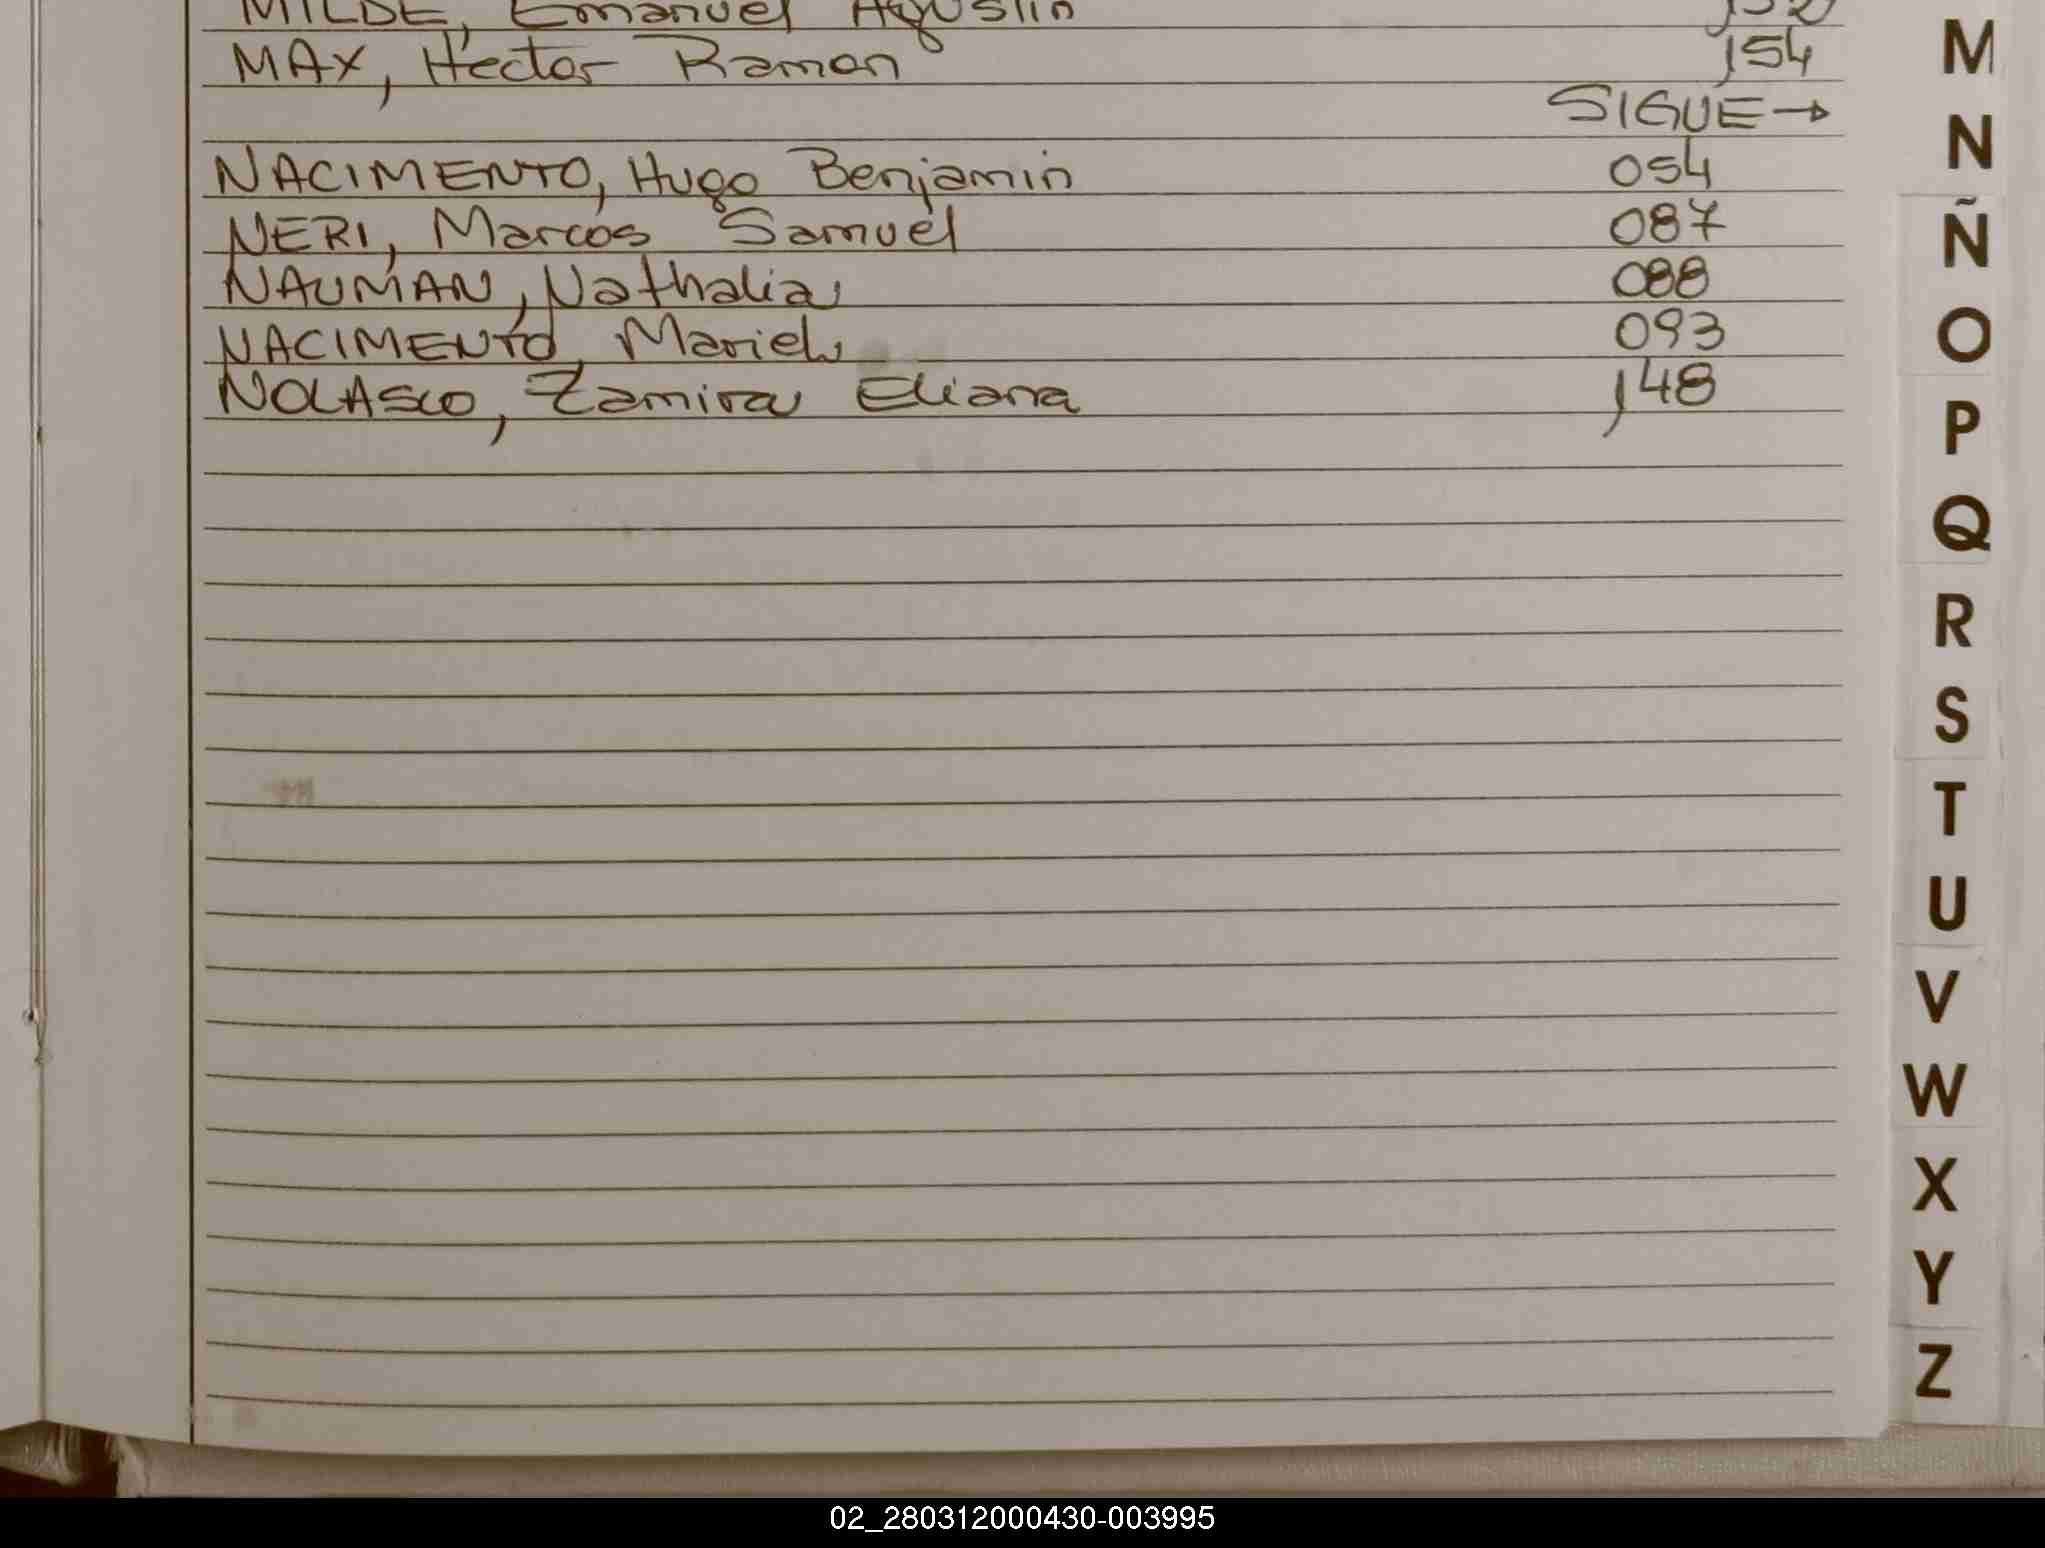 MILDE, Emanuel Agustin 152
MAX, Héctor Ramon 154
SIGUE →
NACIMENTO, Hugo Benjamin 054
NERI, Marcos Samuel 087
NAUMAN, Nathalia 088
NACIMENTO, Mariela 093
NOLASCO, Zamira Eliana 148
M
N
Ñ
O
P
Q
R
S
T
U
V
W
X
Y
Z
02_280312000430-003995